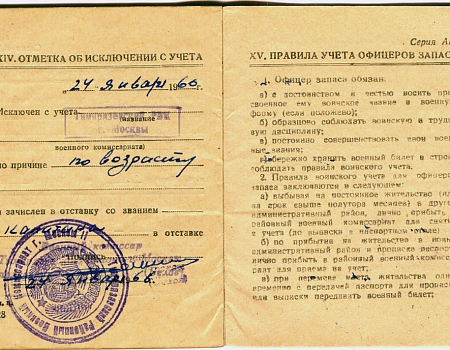 XIV. ОТМЕТКА ОБ ИСКЛЮЧЕНИИ С УЧЕТА
„24" января 1966.
Исключен с учета
Тимирязевский РВК
г. Москвы
название
военного комиссариата)
по причине по возрасту
зачислен в отставку со званием
в отставке
комиссар
подпись
24 января 66.
Серия
XV. ПРАВИЛА УЧЕТА ОФИЦЕРОВ ЗАПАС
1. Офицер запаса обязан.
а) с достоинством и честью носить при
своенное ему воинское звание и военную
форму (если положено);
б) образцово соблюдать воинскую и труд
ую дисциплину;
в) постоянно совершенствовать свои воен
ые знания;
г) бережно хранить военный билет и стро
облюдать правила воинского учета.
2. Правила воинского учета для офицеро
запаса заключаются в следующем:
а) выбывая на постоянное жительство (ил
на срок свыше полутора месяцев) в друго
административный район, лично прибыть
районный военный комиссариат для снят
с учета (до выписки в паспортном столе)
б) по прибытии на жительство в новы
административный район и прописке паспорт
лично прибыть в районный военный комисс
риат для приема на учет;
в) при перемене места жительства одн
временно с передачей паспорта для прописк
или выписки передавать военный билет;